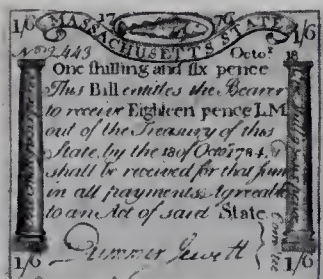 1/6 17 76 1/6
MASSACHUSETTS STATE
No 2443 Octor. 18
One shilling and six pence
This Bill entitles the Bearer
to receive Eighteen pence LM.
out of the Treasury of this
State, by the 18 of Octor. 1784, &
shall be received for that sum
in all payments, Agreeable
to an Act of said State
Dummer Jewett
Com tee
1/6 1/6